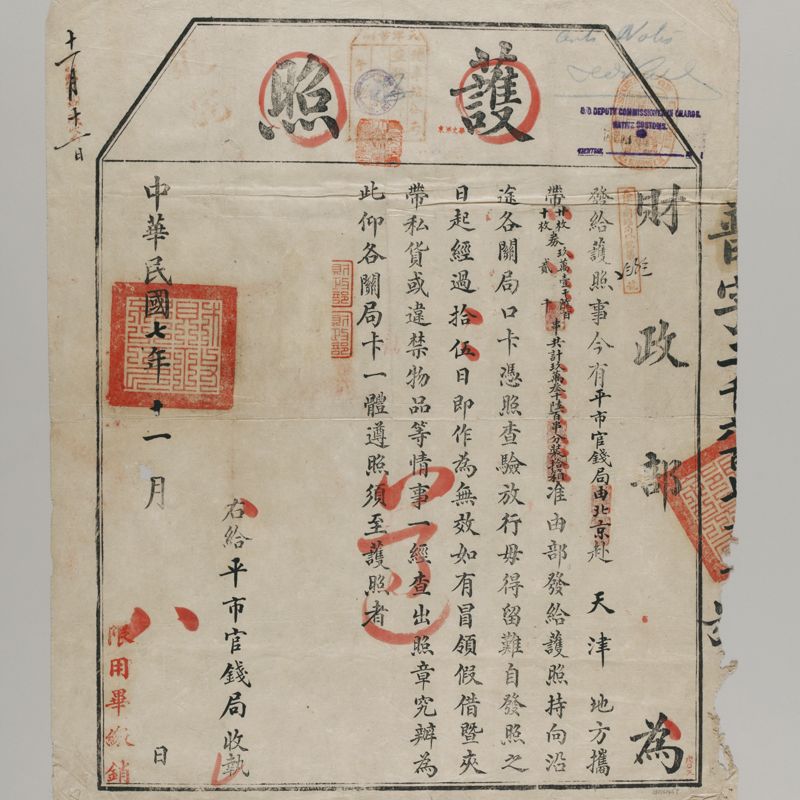 護照
財政部為
發給護照事今有平市官錢局由北京赴天津地方攜
帶廿枚十枚券玖萬壹千陸百貳千串共計玖萬叁千陸百串分裝拾箱准由部發給護照持向沿
途各關局口卡憑照查驗放行毋得留難自發照之
日起經過拾伍日即作為無效如有冒領假借暨夾
帶私貨或違禁物品等情事一經查出照章究辦為
此仰各關局卡一體遵照須至護照者
右給平市官錢局收執
中華民國七年十一月八日
限用畢繳銷
十一月十一日
財政部
財政部
DEPUTY COMMISSIONER IN CHARGE.
NATIVE CUSTOMS.